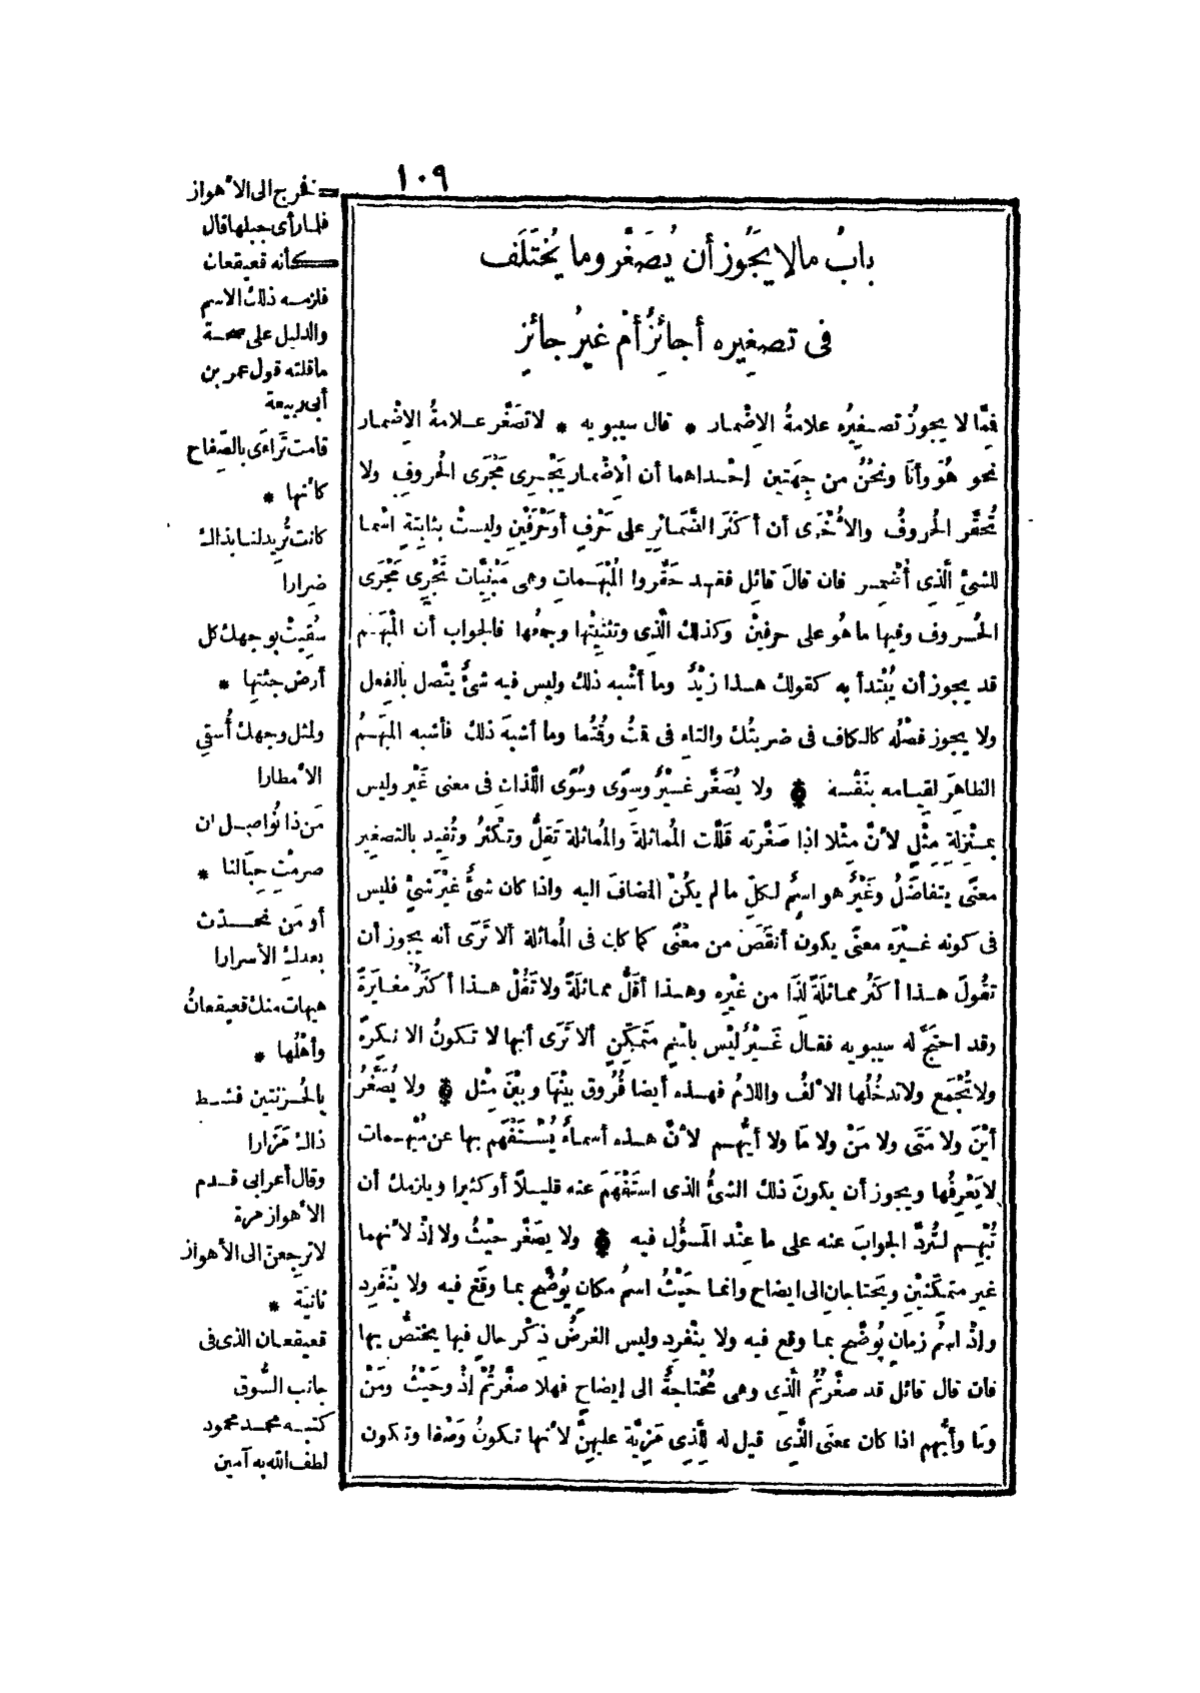 ١٠٩
بابُ مالا يَجُوز أن يُصَغَّر وما يُخْتَلَف
فى تصغِيره أجائِزٌ أمْ غيرُ جائزِ
فمَّا لا يجوزُ تصغيرُه علامةُ الاِضْمار * قال سيبويه * لا تصَغَّر علامةُ الاِضْمار
نحو هُوَ وأنَا ونحْنُ من جِهَتين إحْداهما أن الْاِضْمار يَجْرِى مَجْرَى الحُروفِ ولا
تُحَقَّر الحُروفُ والأُخْرَى أن أكثَرَ الضَّمائرِ على حَرْفٍ أوحَرْفَيْنِ وليستْ بثابتةٍ اسْما
للشىِّ الَّذِى أُضْمِر فان قالَ قائِل فقد حَقَّروا المُبْهَماتِ وهى مَبْنِيَّات تَجْرِى مَجْرَى
الحُروف وفيها ما هُو على حرفيْن وكذلك الَّذِى وتثنِيَتُها وجمعُها فالجواب أن المُبْهَم
قد يجوز أن يُبْتدأ به كقولك هذا زيْدٌ وما أشْبه ذلك وليس فيه شىءٌ يتَّصل بالفِعل
ولا يجوز فصْلُه كالكاف فى ضربتُك والتاءِ فى قمتُ وقُمْتُما وما أشبهَ ذلك فأشبه المبْهَمُ
الظاهِرَ لقِيامه بنَفْسه ولا يُصَغَّر غيْرٌ وسِوًى وسُوًى اللَّذانِ فى معنى غَيْر وليس
بمنْزِلة مِثْلٍ لأنَّ مِثْلا اذا صَغَّرته قَلَّلت المُماثلةَ والمُماثلة تَقِلُّ وتكْثُرُ وتُفِيد بالتصغير
معنًى يتفاضَلُ وغَيْرٌ هو اسمٌ لكلِّ ما لم يكُنْ المضافَ اليه واذا كان شىءٌ غيْرَ شىْءٍ فليس
فى كونه غيْرَه معنًى يكون أنقَصَ من معْنًى كما كان فى المُماثلة ألا تَرَى أنه يجوز أن
تقُولَ هذا أكثَرُ مماثلَةً لِذَا من غيْرِه وهذا أقَلُّ مماثلَةً ولا تَقُلْ هذا أكثَرُ مغايَرةً
وقد احتجَّ له سيبويه فقال غَيْرٌ ليْس باسْمٍ متَمكِّنٍ ألا تَرَى أنها لا تكونُ الا نكِرةً
ولا تُجْمَع ولا تدخُلُها الألفُ واللامُ فهذه أيضا فُرُوق بيْنَها وبيْنَ مِثْل ولا يُصَغَّرُ
أيْنَ ولا مَتَى ولا مَنْ ولا مَا ولا أيُّهم لأنَّ هذه أسماءٌ يُسْتَفْهَم بها عن مُبْهَمات
لا يَعْرِفُها ويجوز أن يكونَ ذلك الشىُّ الذى استَفْهَمَ عنه قليلاً أوكثيرا ويلزمك أن
تُبْهِم لتُردَّ الجوابَ عنه على ما عِنْد المَسؤُل فيه ولا يصَغَّر حيْثُ ولا إذْ لأنهما
غير متمكِّنَيْنِ ويحتاجانِ الى ايضاح وانما حَيْثُ اسمُ مكانٍ يُوضَّح بما وقَع فيه ولا ينْفَرِد
وإذْ اسْمُ زمانٍ يُوضَّح بما وقع فيه ولا ينْفرِد وليس الغرضُ ذِكْر حالٍ فيها يختصُّ بها
فان قال قائل قد صغَّرْتُمُ الَّذِى وهى مُحْتاجةٌ الى إيضاحٍ فهلا صغَّرتُمْ إذْ وحَيْثُ ومَنْ
ومَا وأيُّهم اذا كان بمعنَى الَّذِى قيل له لِلَّذِى مَزِيَّة عليهِنَّ لأنها تكونُ وَصْفا وتكون
= نخرج الى الأهواز
فلما رأى جبلها قال
كأنه قعيقعان
فلزمه ذلك الاسم
والدليل على صحة
ما قلته قول عمر بن
أبى ربيعة
قامت تَرَاءَى بالصِّفاح
كأنها *
كانت تُرِيد لنا بذاك
ضِرارا
سُقِيتْ بوجهك كل
أرض جئتِها *
ولمثل وجهك أُسقِى
الأمطارا
مَن ذا نُواصِل ان
صرمْتِ حِبَالنا *
أو مَن نحدث
بعدكِ الأسرارا
هيهات منك قعيقعانُ
وأهْلُها *
بالحُزنتين فشط
ذاك مَزَارا
وقال أعرابى قدم
الأهواز مرة
لا ترجِعنّ الى الأهواز
ثانيَة *
قعيقعان الذى فى
جانب السُّوق
كتبه محمد محمود
لطف الله به آمين